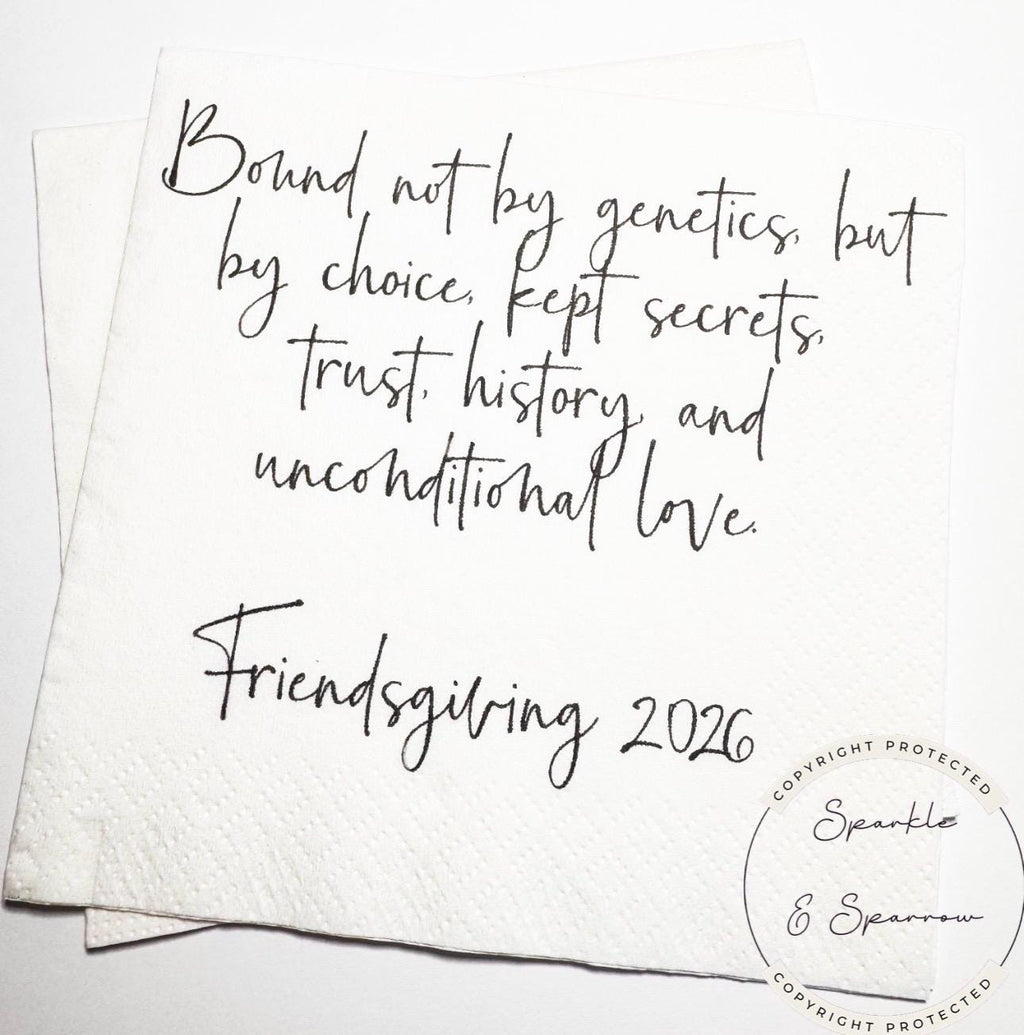 Bound not by genetics, but
by choice, kept secrets,
trust, history, and
unconditional love.
Friendsgiving 2026
COPYRIGHT PROTECTED
Sparkle
& Sparrow
COPYRIGHT PROTECTED